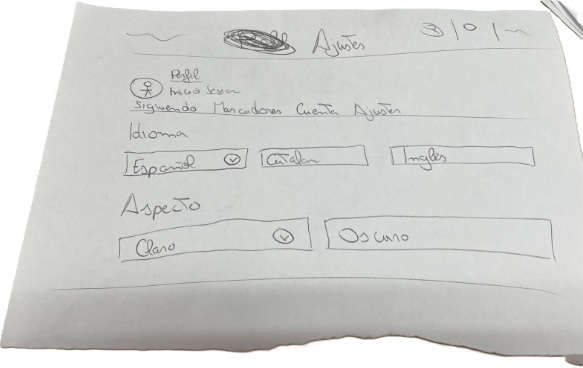 Ajustes
Perfil
Inicio Sesion
Siguendo Marcadores Cuenta Ajustes
Idioma
Español Catalan Ingles
Aspecto
Claro Oscuro